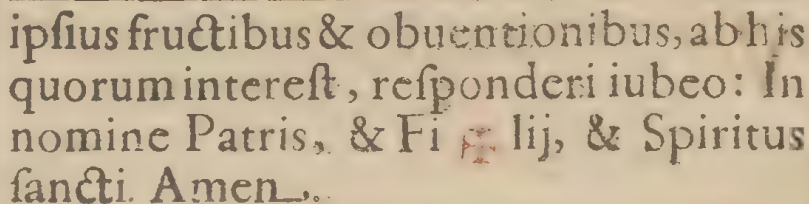 ipſius fructibus & obuentionibus, ab his
quorum intereſt, reſponderi iubeo: In
nomine Patris, & Fi ✠ lij, & Spiritus
ſancti. Amen.